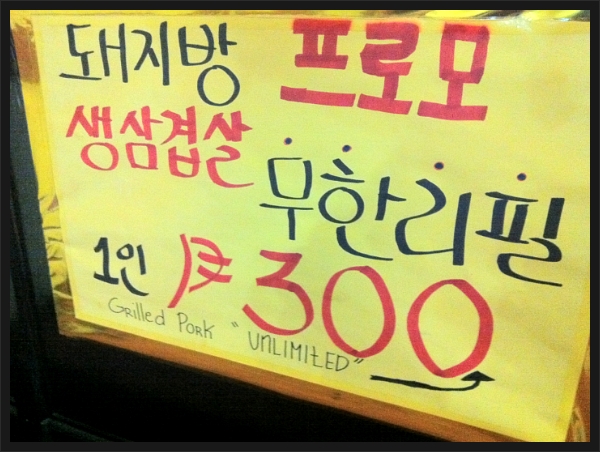 돼지방 프로모
생삼겹살
무한리필
1인 ₱300
Grilled Pork "UNLIMITED"